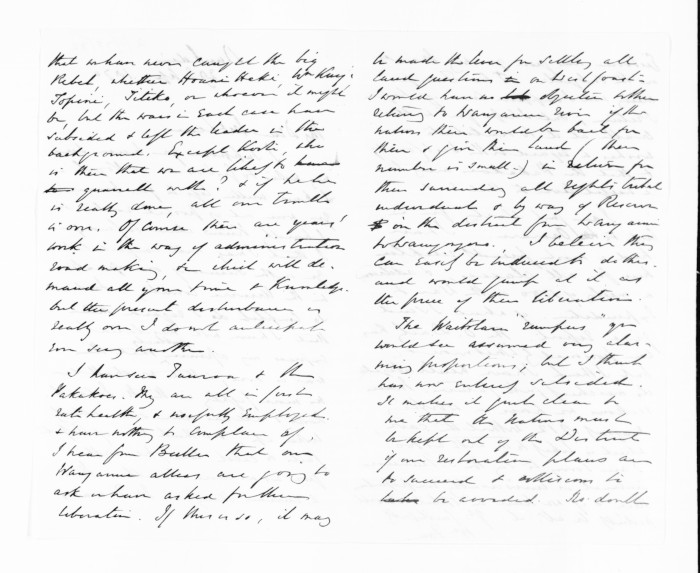 that when never caught the big
Rebel, whether Honi Heki, Wm King,
Topini, Titoko, or whoever it might
be, but the wars in each case have
subsided & left the leader in the
background. Except Kooti, who
is there that we are likely to
quarrell with? & if he
is really done, all our trouble
is over. Of course there are years'
work in the way of administration
road making, &c which will de-
mand all your time & Knowledge.
but the present disturbance is
really over I do not anticipate
ever seeing another.
I have seen Tauroa & the
Pakakohes. They are all in first
rate health, & usefully employed.
& have nothing to complain of.
I hear from Buller that our
Wanganui allies are going to
ask or have asked for their
liberation. If this is so, it may
be made the lever for settling all
land questions on West Coast.
I would have no objection to their
returning to Wanganui River if the
natives there would be bail for
them & give them land (their
number is small.) in return for
their surrendering all rights tribal
individual & by way of Reserve
in the district from Wanganui
to Waingongoro. I believe they
can easily be induced to do this.
and would jump at it as
the price of their liberation.
The Waitotara "rumpus" you
would see assumed very alar-
ming proportions; but I think
has now entirely subsided.
It makes it quite clear to
me that the Natives must
be kept out of the District
if our restoration plans are
to succeed & collisions to
be avoided. No doubt